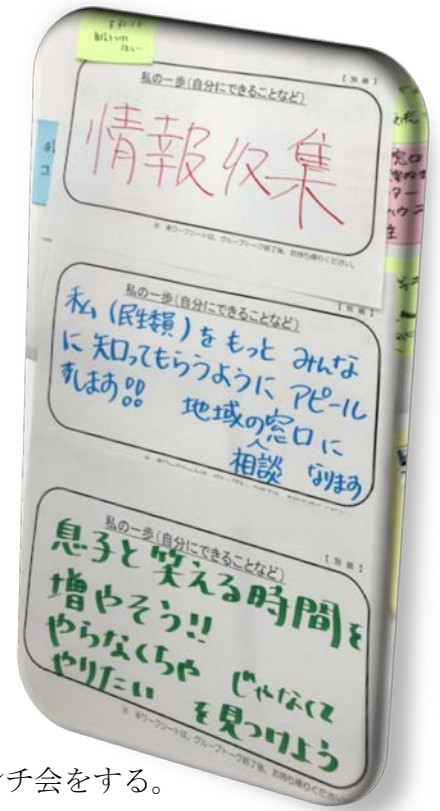 【別紙】
私の一歩(自分にできることなど)
情報収集
※ 本ワークシートは、グループトーク終了後、お持ち帰りください。
【別紙】
私の一歩(自分にできることなど)
私(民生委員)をもっと みんな
に 知ってもらうように アピール
します!! 地域の窓口に
相談 なります
【別紙】
私の一歩(自分にできることなど)
息子と笑える時間を
増やそう!!
やらなくちゃ じゃなくて
やりたい を見つけよう
※ 本ワークシートは、グループトーク終了後、お持ち帰りください。
窓口
ンチ会をする。